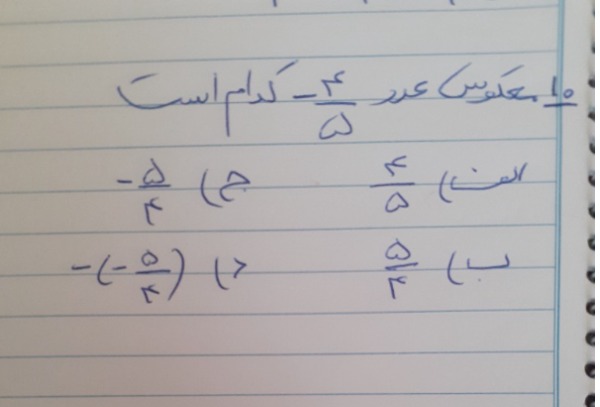 ۱۰ معکوس عدد -۴/۵ کدام است
الف) ۴/۵ ج) -۵/۴
ب) ۵/۴ د) -(-۵/۴)